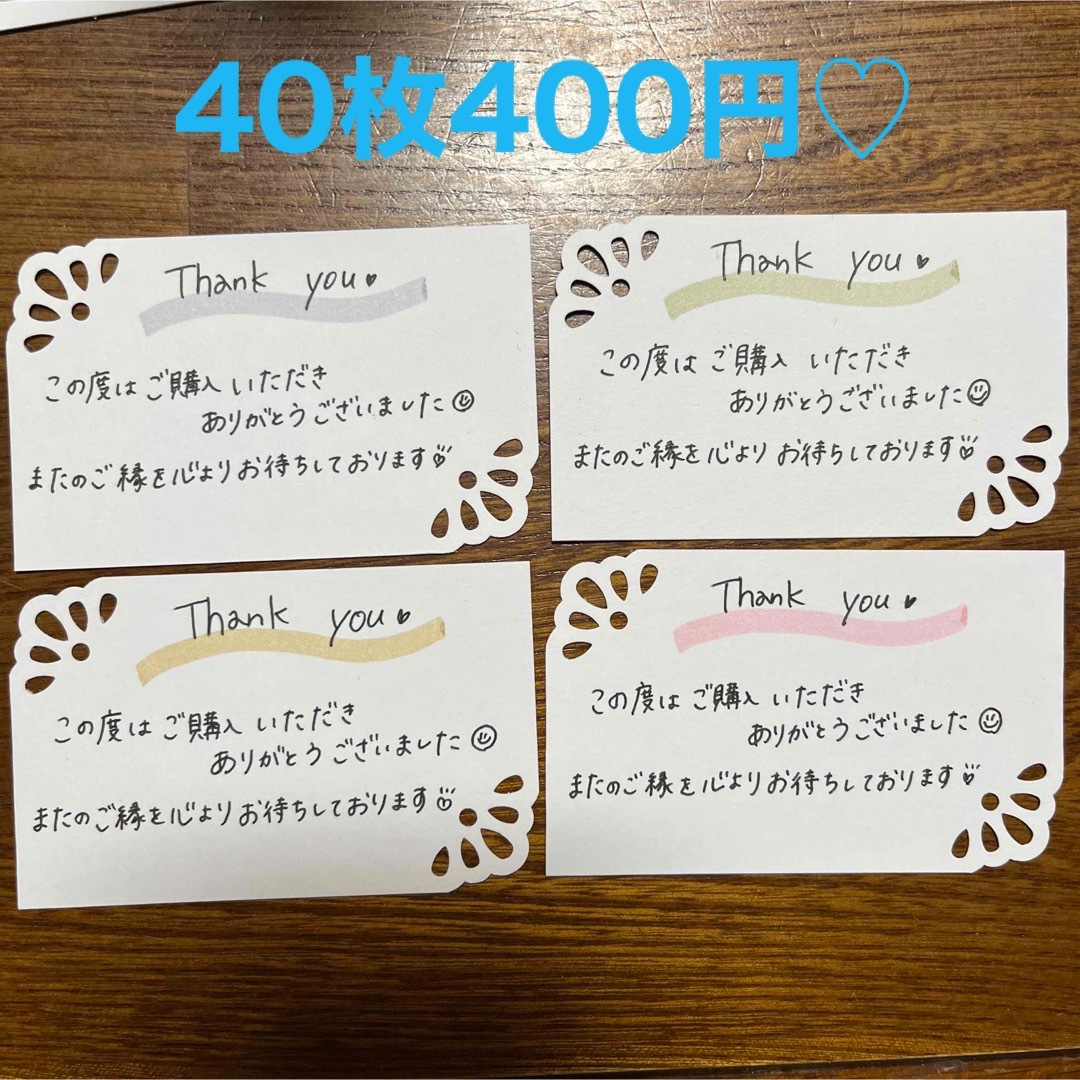 40枚400円♡
Thank you♥
この度は ご購入 いただき
ありがとうございました☺
またのご縁を心より お待ちしております♡
Thank you♥
この度は ご購入 いただき
ありがとうございました☺
またのご縁を心より お待ちしております♡
Thank you♥
この度は ご購入 いただき
ありがとうございました☺
またのご縁を心より お待ちしております♡
Thank you♥
この度は ご購入 いただき
ありがとうございました☺
またのご縁を心より お待ちしております♡